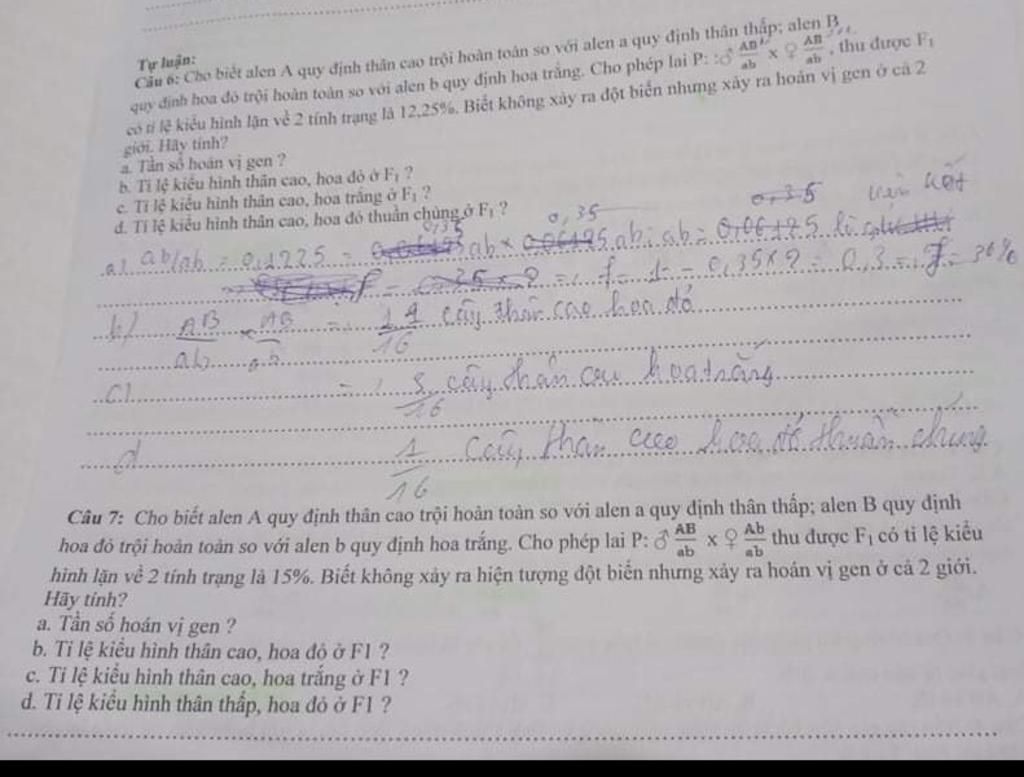 Tự luận:
Câu 6: Cho biết alen A quy định thân cao trội hoàn toàn so với alen a quy định thân thấp; alen B
quy định hoa đỏ trội hoàn toàn so với alen b quy định hoa trắng. Cho phép lai P: ♂ AB/ab x ♀ AB/ab, thu được F1
có tỉ lệ kiểu hình lặn về 2 tính trạng là 12,25%. Biết không xảy ra đột biến nhưng xảy ra hoán vị gen ở cả 2
giới. Hãy tính?
a. Tần số hoán vị gen ?
b. Tỉ lệ kiểu hình thân cao, hoa đỏ ở F1 ?
c. Tỉ lệ kiểu hình thân cao, hoa trắng ở F1 ?
d. Tỉ lệ kiểu hình thân cao, hoa đỏ thuần chủng ở F1 ?
0,35 0,35 0,35
a) ab/ab = 0,1225 = ab x ab; ab =
f = 1 - 0,35 x 2 = 0,3 => f = 30%
b) AB/ab x AB/ab = cây thân cao hoa đỏ
c) = 3/16 cây thân cao hoa trắng
d 1/16 cây thân cao hoa đỏ thuần chủng
Câu 7: Cho biết alen A quy định thân cao trội hoàn toàn so với alen a quy định thân thấp; alen B quy định
hoa đỏ trội hoàn toàn so với alen b quy định hoa trắng. Cho phép lai P: ♂ AB/ab x ♀ Ab/ab thu được F1 có tỉ lệ kiểu
hình lặn về 2 tính trạng là 15%. Biết không xảy ra hiện tượng đột biến nhưng xảy ra hoán vị gen ở cả 2 giới.
Hãy tính?
a. Tần số hoán vị gen ?
b. Tỉ lệ kiểu hình thân cao, hoa đỏ ở F1 ?
c. Tỉ lệ kiểu hình thân cao, hoa trắng ở F1 ?
d. Tỉ lệ kiểu hình thân thấp, hoa đỏ ở F1 ?